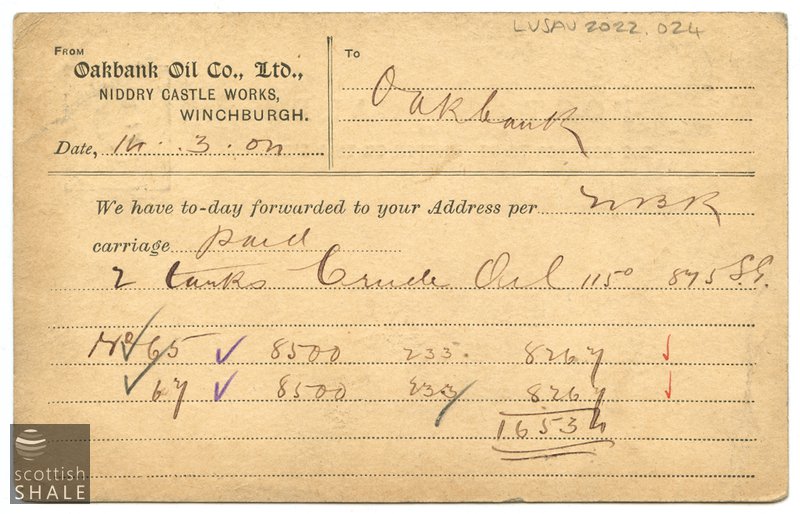 LVSAV 2022.024
FROM
Oakbank Oil Co., Ltd.,
NIDDRY CASTLE WORKS,
WINCHBURGH.
Date, 14. 3. 04
To
Oakbank
We have to-day forwarded to your Address per NBR
carriage paid
2 tanks Crude Oil 115° 875 S.G.
No 65 8500 233. 8267
67 8500 233 8267
16534
scottish
SHALE